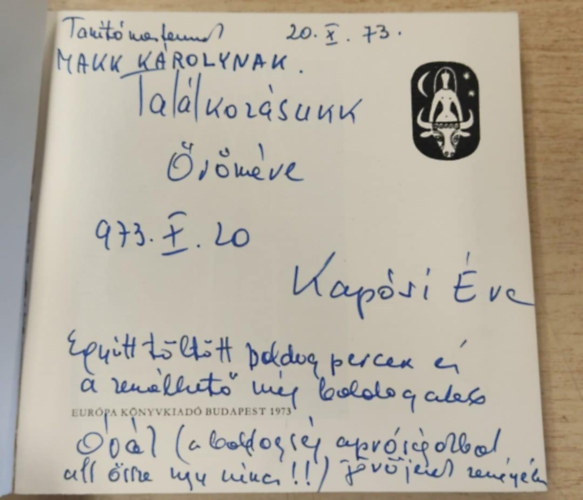 Tanítómesterünk 20. X. 73.
MAKK KÁROLYNAK.
Találkozásunkk
Öröméve
973. X. 20
Kapósi Éva
Együtt töltött boldog percek és
a remélhető még boldogabb
EURÓPA KÖNYVKIADÓ BUDAPEST 1973
(a boldogság apróságokbol
áll össze !!) jövőjének reményében